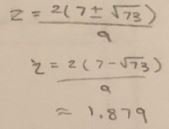 z = 2(7±√73)/9
z = 2(7-√73)/9
= 1.879